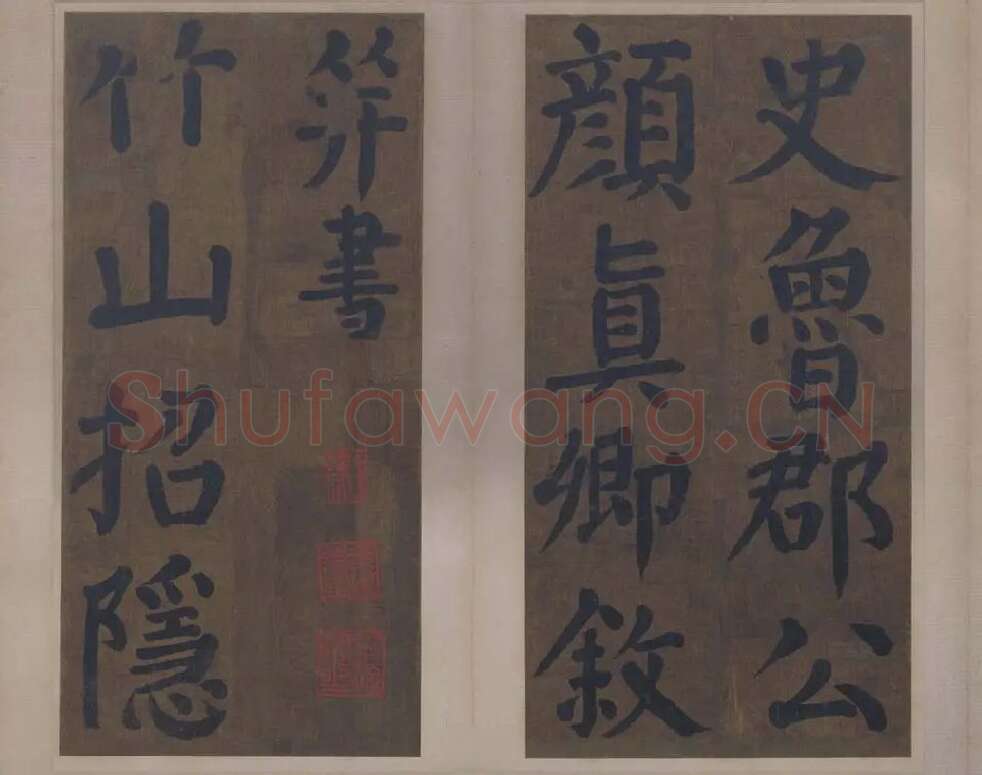 史魯郡公
顔眞卿敘
幷書
竹山招隱
Shufawang.CN